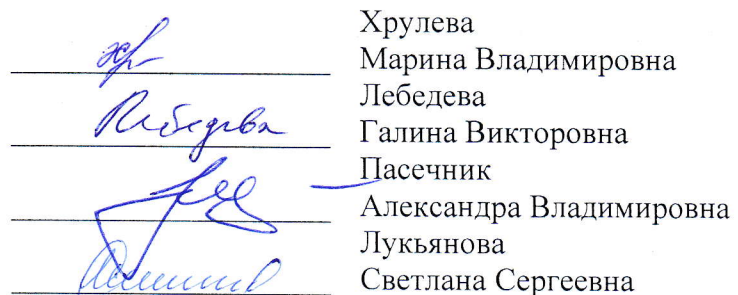 Хрулева
Марина Владимировна
Лебедева
Лебедева
Галина Викторовна
Пасечник
Александра Владимировна
Лукьянова
Светлана Сергеевна